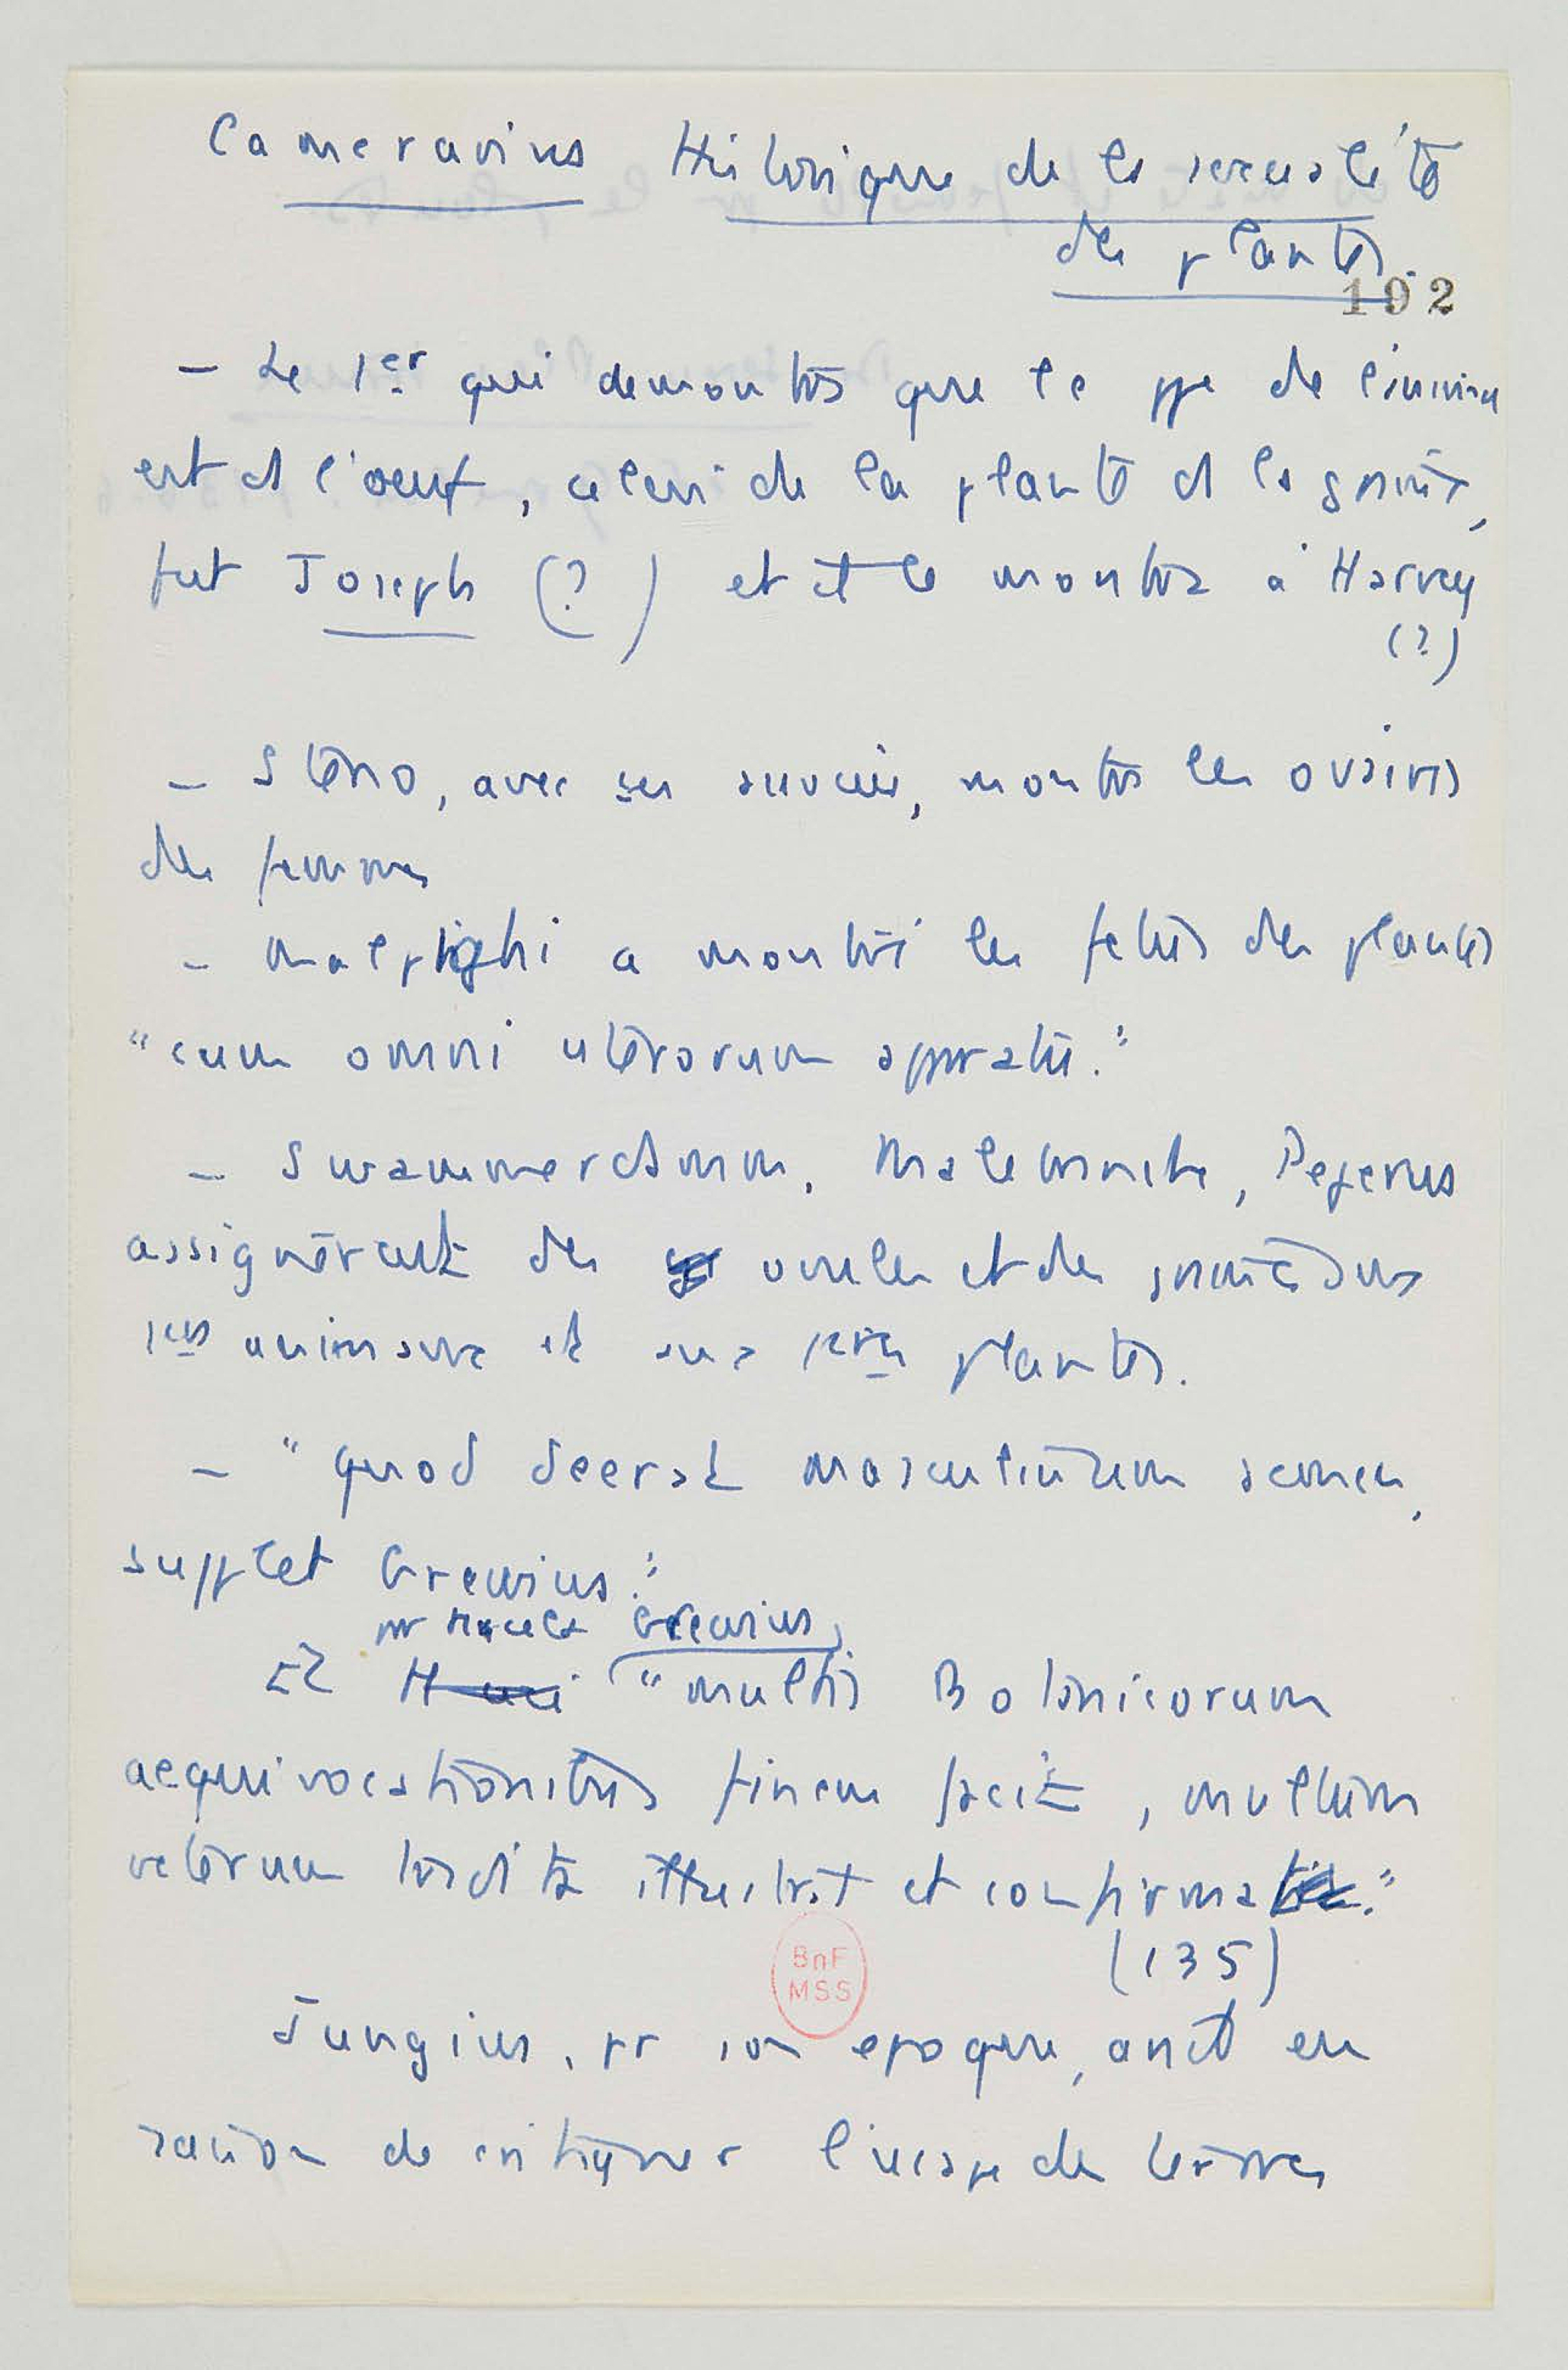 Camerarius Historique de la sexualité
des plantes.
192
– Le 1er qui demontra que le ppe de l'anima
est ds l'oeuf, celui de la plante ds la graine,
fut Joseph (?) et il le montra à Harvey
(?)
– Steno, avec ses, montra les ovaires
des femmes
– Malpighi a montré les fetus des plantes
"cum omni uterorum apparatu."
– Swammerdamm,
assignèrent des ovules et des aux
1ers animaux et aux 1ères plantes.
– "quod deerat masculinum semen,
supplet Grewius."
Grewius,
Et "multis Botanicorum
aequivocationibus finem facit, multum
veterum tradita illustrat et confirmat."
(135)
BnF
MSS
Jungius, pr son epoque, avait eu
raison de critiquer l'usage des termes